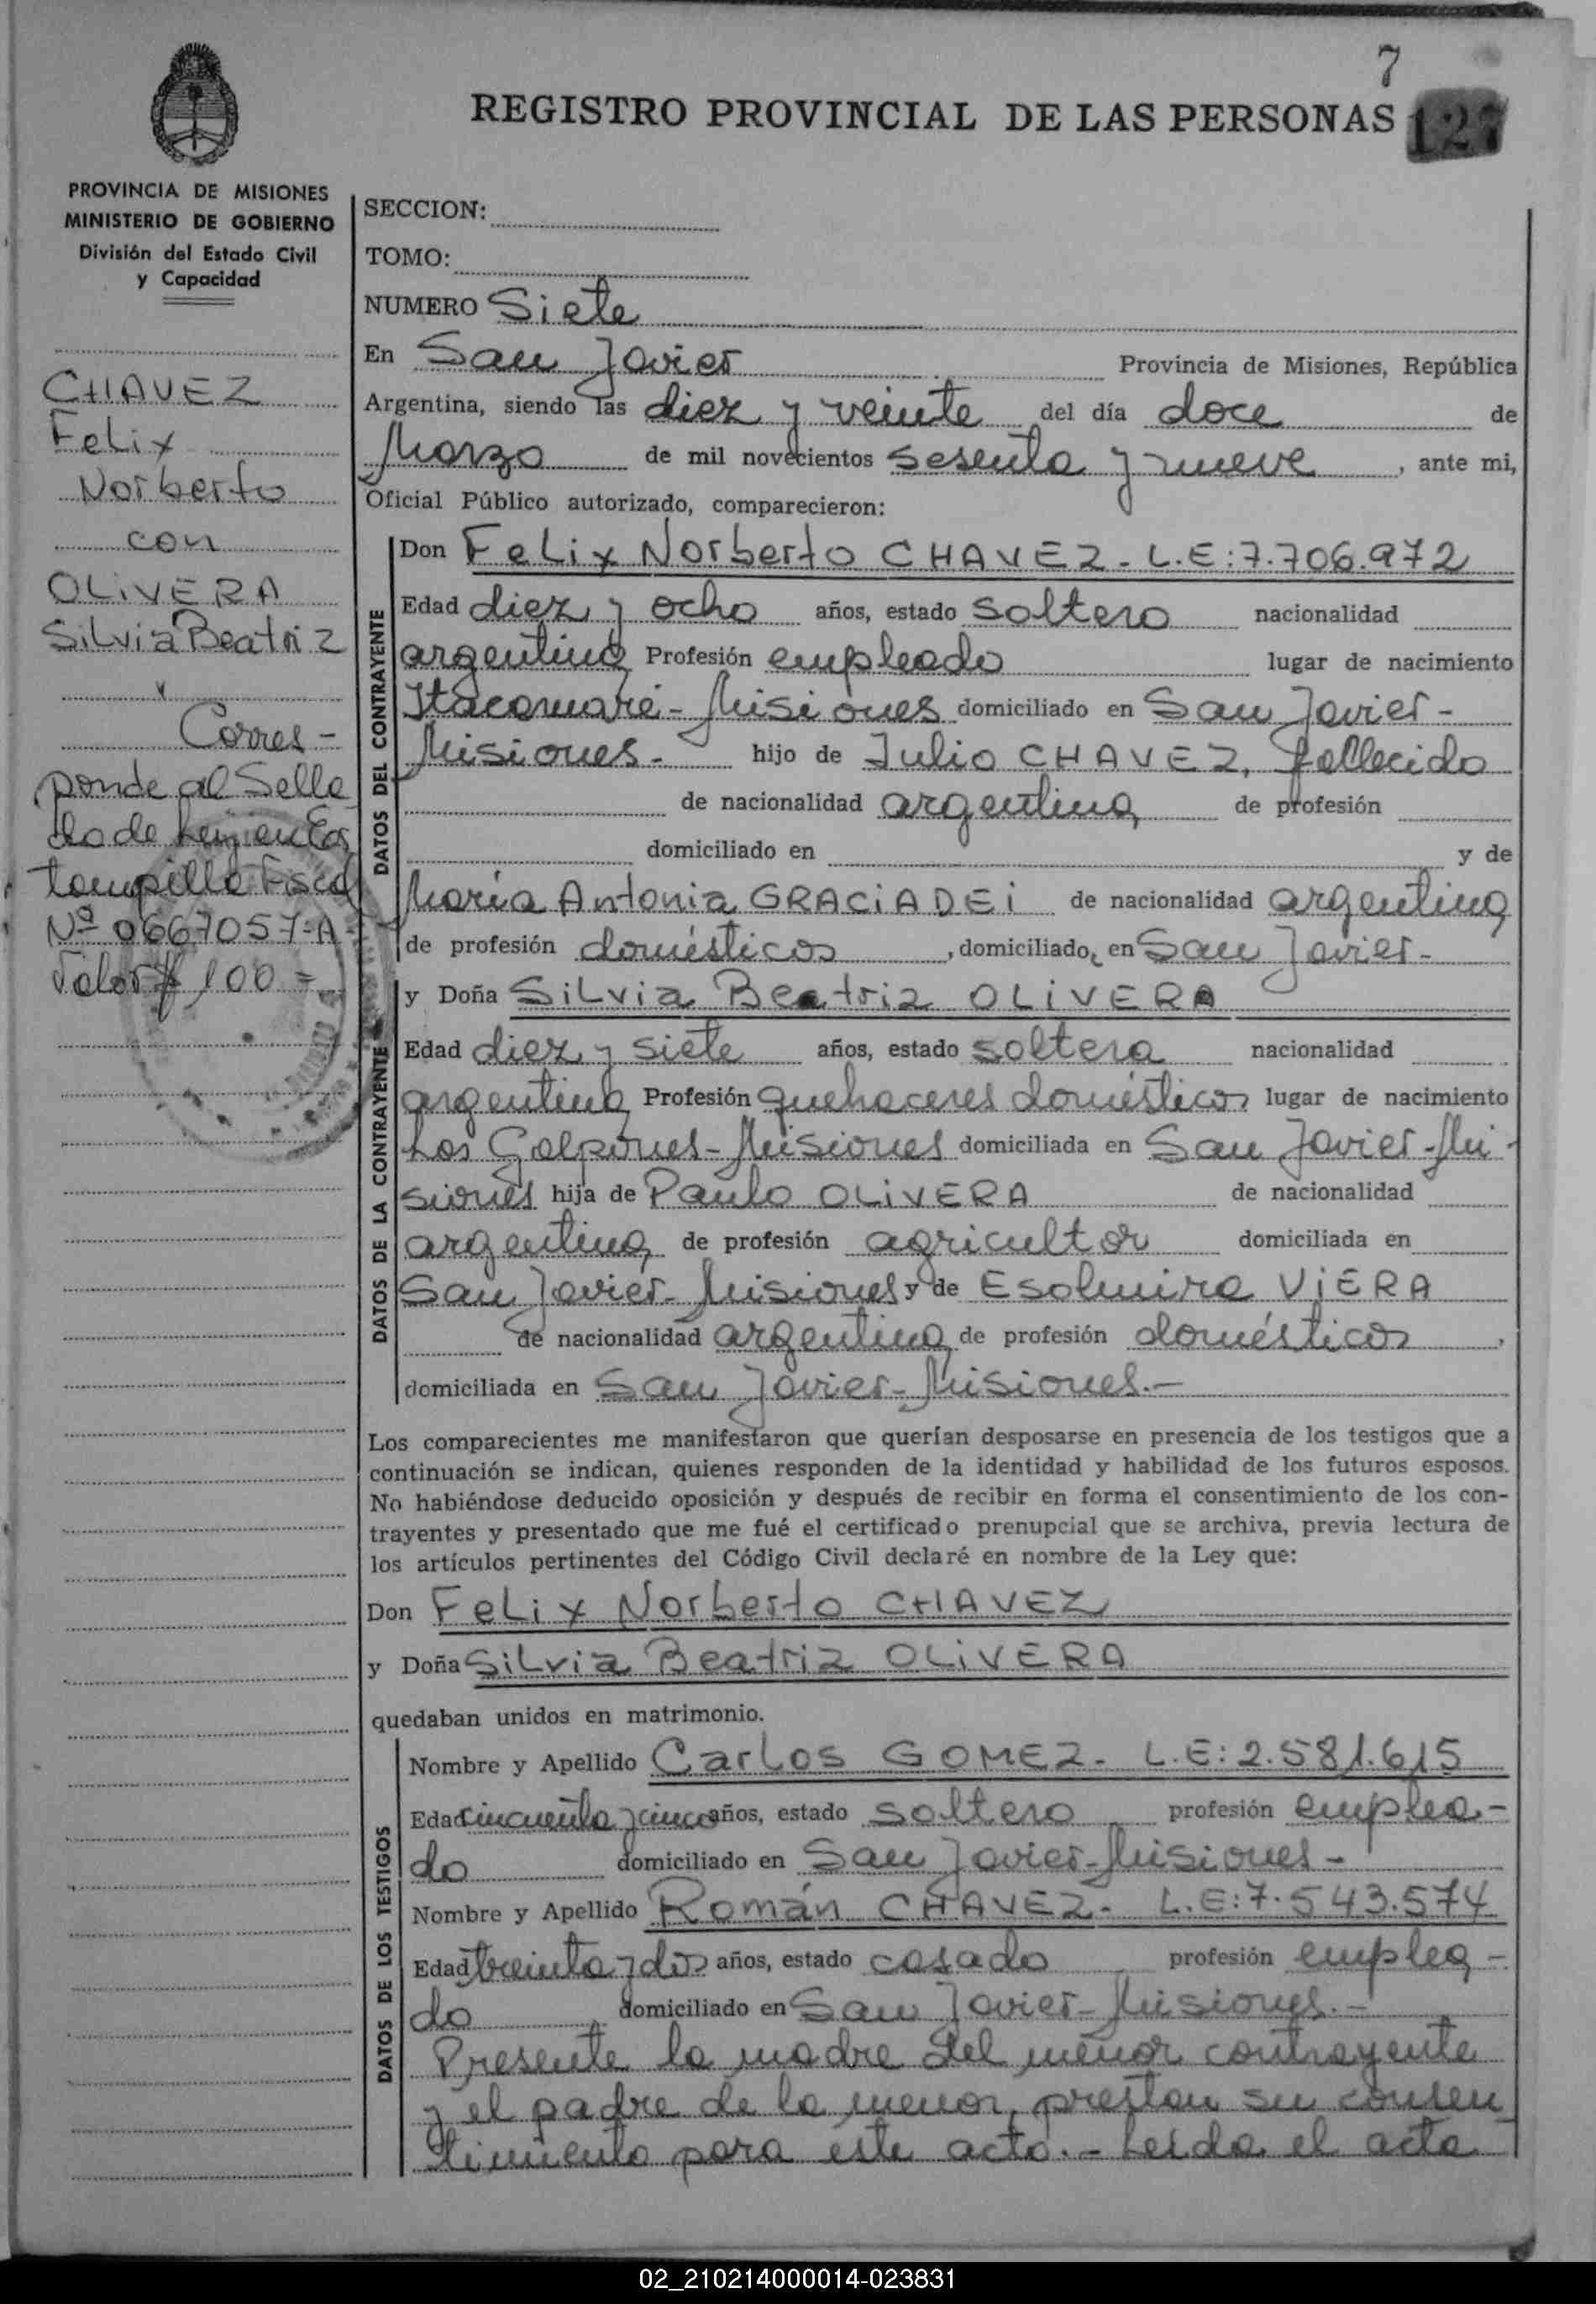 7
REGISTRO PROVINCIAL DE LAS PERSONAS
127
PROVINCIA DE MISIONES
MINISTERIO DE GOBIERNO
División del Estado Civil
y Capacidad
CHAVEZ
Felix
Norberto
con
OLIVERA
Silvia Beatriz
Corres-
ponde al Sella
do de
tampilla Fiscal
Nº 0667057-A
Valor $ 100 =
SECCION:
TOMO:
NUMERO Siete
En San Javier Provincia de Misiones, República
Argentina, siendo las diez y veinte del día doce de
Marzo de mil novecientos sesenta y nueve, ante mi,
Oficial Público autorizado, comparecieron:
DATOS DEL CONTRAYENTE
Don Felix Norberto CHAVEZ - L.E: 7.706.972
Edad diez y ocho años, estado soltero nacionalidad
argentina Profesión empleado lugar de nacimiento
Itacaruaré - Misiones domiciliado en San Javier -
Misiones.- hijo de Julio CHAVEZ, fallecido
de nacionalidad argentina de profesión
domiciliado en y de
María Antonia GRACIADEI de nacionalidad argentina
de profesión domésticos, domiciliado, en San Javier -
DATOS DE LA CONTRAYENTE
y Doña Silvia Beatriz OLIVERA
Edad diez y siete años, estado soltera nacionalidad
argentina Profesión quehaceres domésticos lugar de nacimiento
Los Galpones - Misiones domiciliada en San Javier - Mi -
siones hija de Paulo OLIVERA de nacionalidad
argentina, de profesión agricultor domiciliada en
San Javier - Misiones y de Esolmira VIERA
de nacionalidad argentina de profesión domésticos,
domiciliada en San Javier - Misiones.-
Los comparecientes me manifestaron que querían desposarse en presencia de los testigos que a
continuación se indican, quienes responden de la identidad y habilidad de los futuros esposos.
No habiéndose deducido oposición y después de recibir en forma el consentimiento de los con-
trayentes y presentado que me fué el certificado prenupcial que se archiva, previa lectura de
los artículos pertinentes del Código Civil declaré en nombre de la Ley que:
Don Felix Norberto CHAVEZ
y Doña Silvia Beatriz OLIVERA
quedaban unidos en matrimonio.
DATOS DE LOS TESTIGOS
Nombre y Apellido Carlos GOMEZ - L.E: 2.581.615
Edad cincuenta y cinco años, estado soltero profesión emplea-
do domiciliado en San Javier - Misiones -
Nombre y Apellido Román CHAVEZ - L.E: 7.543.574
Edad treinta y dos años, estado casado profesión emplea -
do domiciliado en San Javier - Misiones.-
Presente la madre del menor contrayente
y el padre de la menor, prestan su consen
timiento para este acto.- Leida el acta
02_210214000014-023831